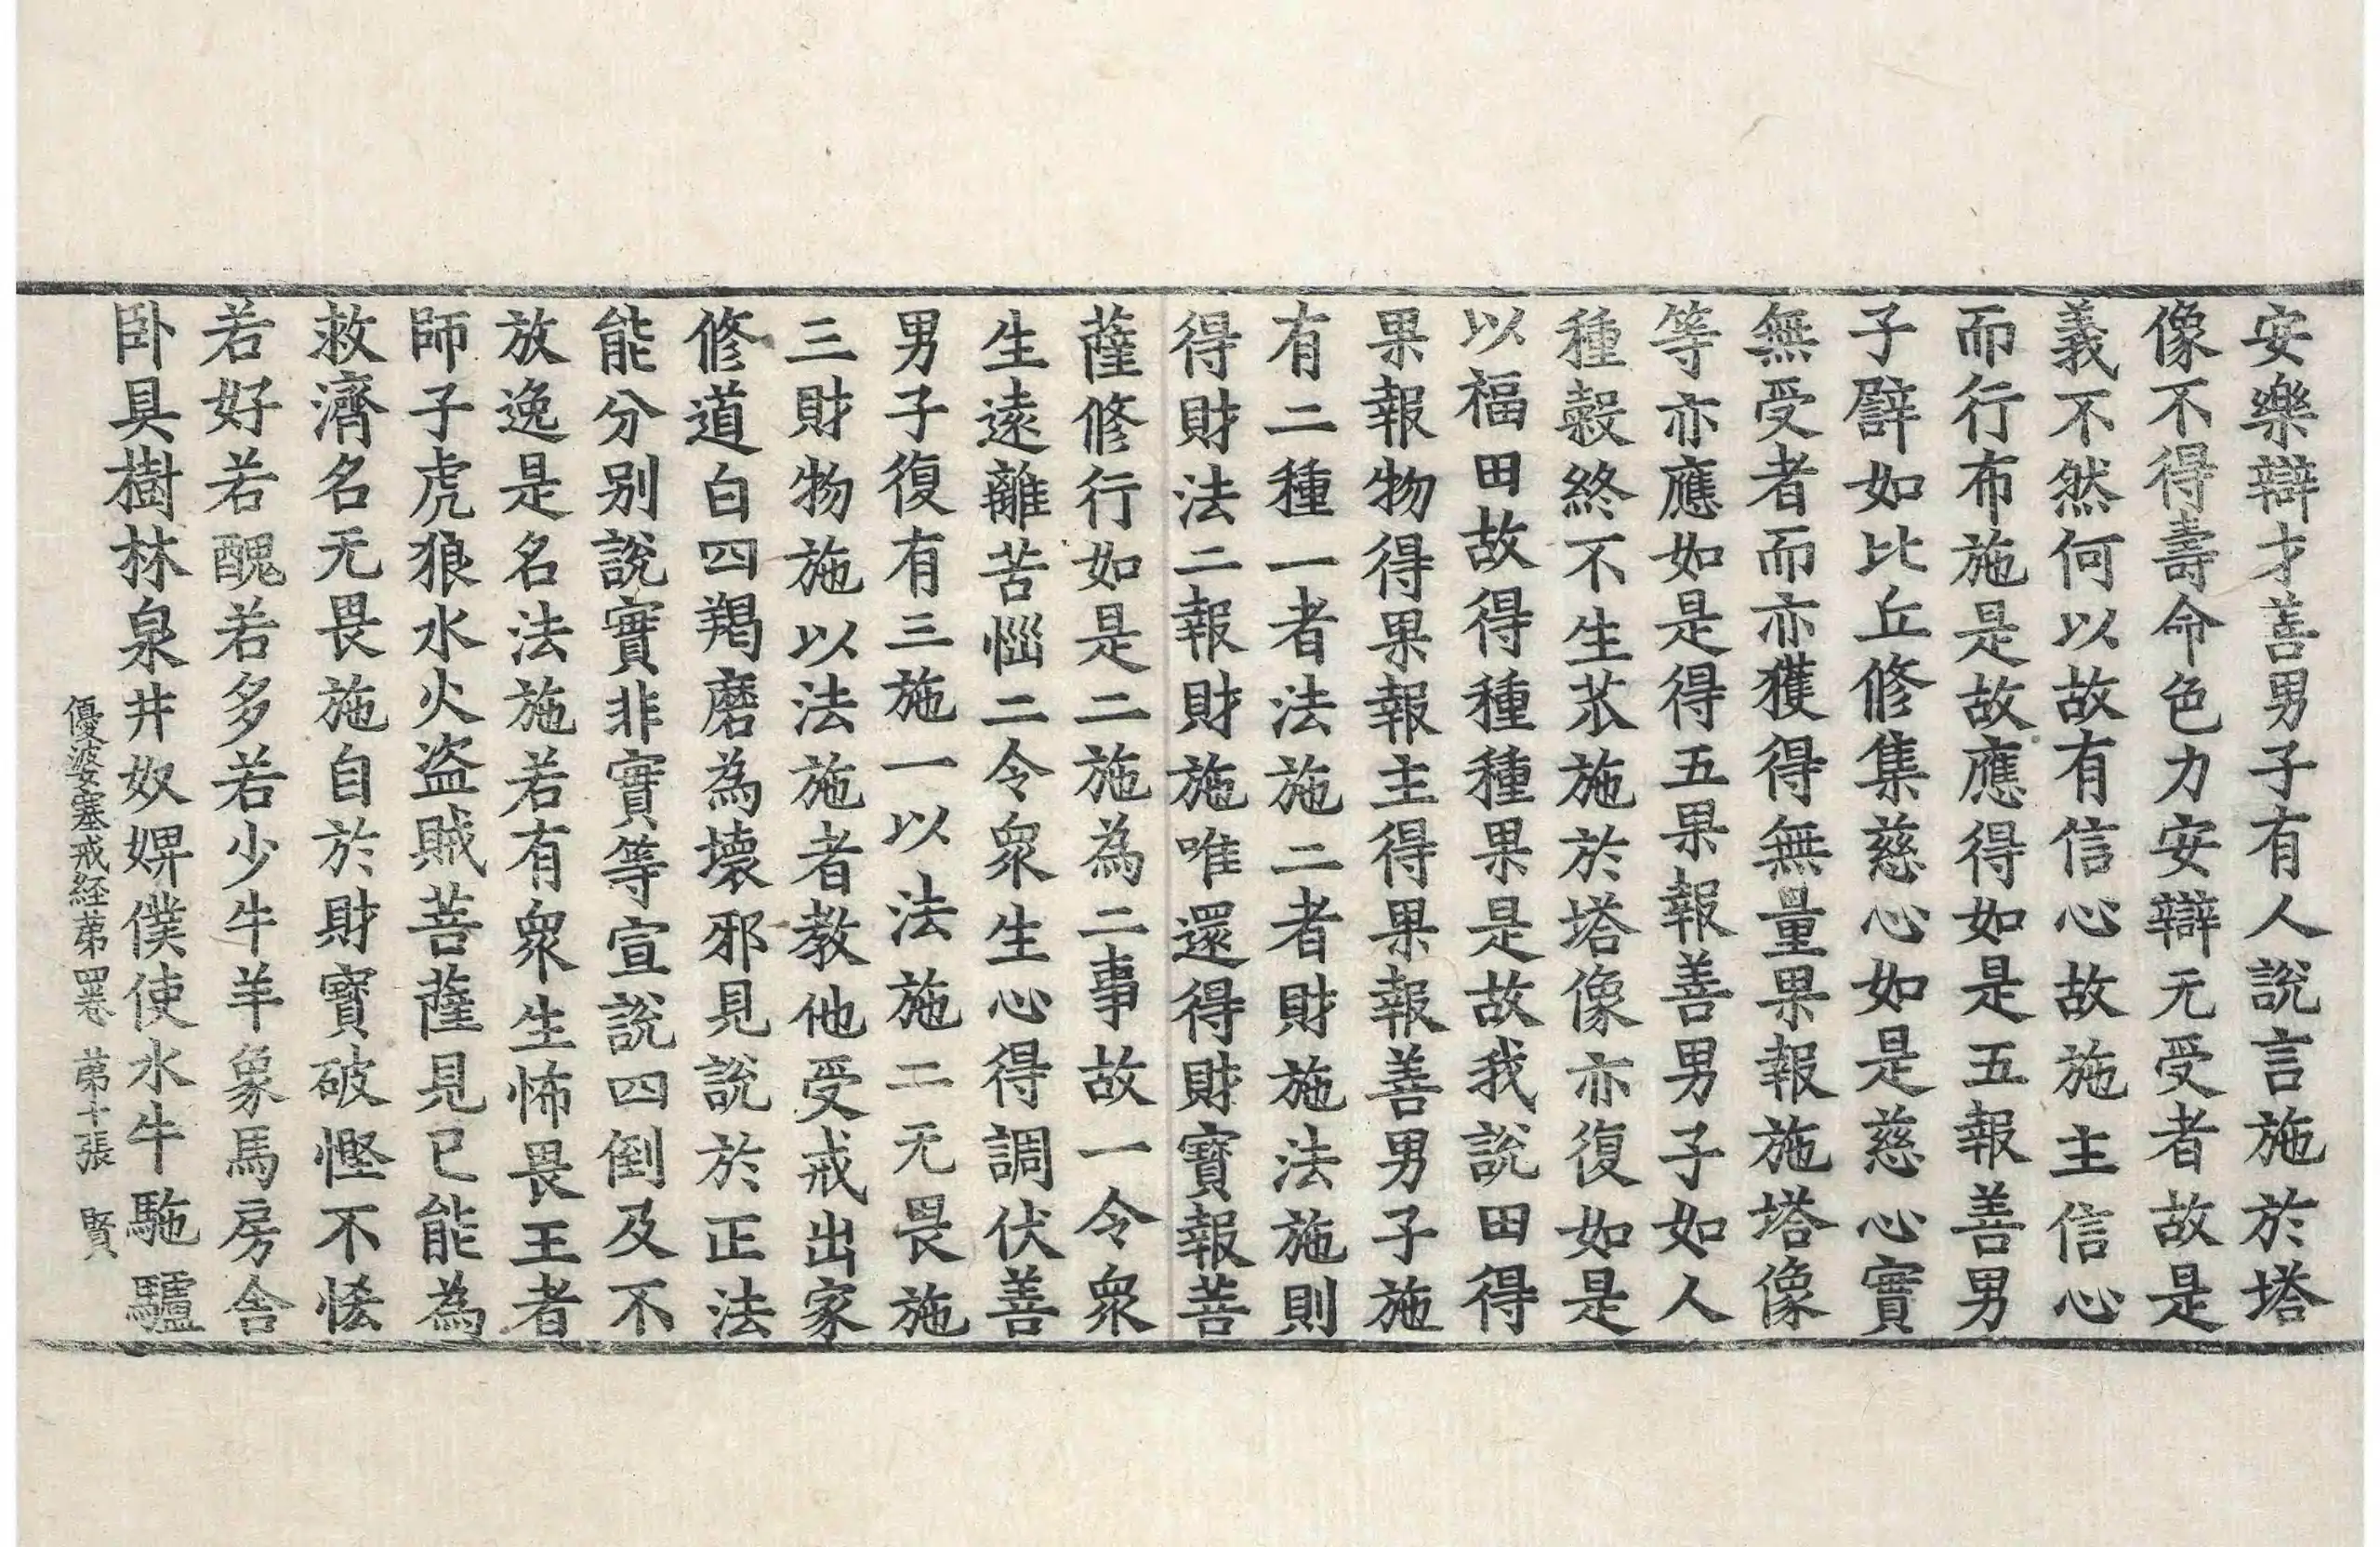 安樂辯才善男子有人說言施於塔
像不得壽命色力安辯无受者故是
義不然何以故有信心故施主信心
而行布施是故應得如是五報善男
子譬如比丘修集慈心如是慈心實
無受者而亦獲得無量果報施塔像
等亦應如是得五果報善男子如人
種穀終不生苽施於塔像亦復如是
以福田故得種種果是故我說田得
果報物得果報主得果報善男子施
有二種一者法施二者財施法施則
得財法二報財施唯還得財寶報菩
薩修行如是二施為二事故一令衆
生遠離苦惱二令衆生心得調伏善
男子復有三施一以法施二无畏施
三財物施以法施者教他受戒出家
修道白四羯磨為壞邪見說於正法
能分別說實非實等宣說四倒及不
放逸是名法施若有衆生怖畏王者
師子虎狼水火盗賊菩薩見已能為
救濟名无畏施自於財寶破慳不悋
若好若醜若多若少牛羊象馬房舎
卧具樹林泉井奴婢僕使水牛駞驢
優婆塞戒経苐四卷 苐十張 賢